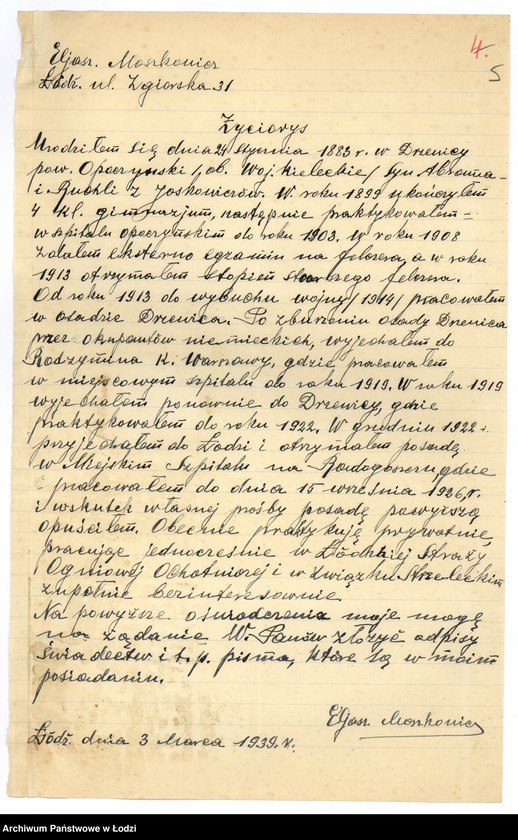 4.
5
Eljasz Moszkowicz
Łódź. ul. Zgierska 31
Życiorys
Urodziłem się dnia 24 stycznia 1883 r. w Drzewicy
pow. Opoczyński /ob. Woj. kieleckie/ syn Abrama-
i Ruchli z Joskowiczów. W roku 1899 ukończyłem
4 kl. gimnazjum, następnie praktykowałem-
w szpitalu opoczyńskim do roku 1903. w roku 1908
zdałem eksterno egzamin na felczera, a w roku
1913 otrzymałem stopień starszego felczera.
Od roku 1913 do wybuchu wojny /1914/ pracowałem
w osadzie Drzewica. Po zburzeniu osady Drzewica
przez okupantów niemieckich, wyjechałem do
Radzymina k. Warszawy, gdzie pracowałem
w miejscowym szpitalu do roku 1919. W roku 1919
wyjechałem ponownie do Drzewicy, gdzie
praktykowałem do roku 1922. W grudniu 1922 r.
przyjechałem do Łodzi i otrzymałem posadę
w Miejskim Szpitalu na Radogoszczu, gdzie
pracowałem do dnia 15 września 1926, r.
i wskutek własnej prośby posadę powyższą
opuściłem. Obecnie praktykuję prywatnie,
pracując jednocześnie w Łódzkiej Straży
Ogniowej Ochotniczej i w Związku Strzeleckim
zupełnie bezinteresownie
Na powyższe oświadczenia moje mogę
na żądanie W. Panów złożyć odpisy
świadectw i t. p. pisma, które są w moim
posiadaniu.
Eljasz Moszkowicz
Łódź. dnia 3 Marca 1939. r.
Archiwum Państwowe w Łodzi